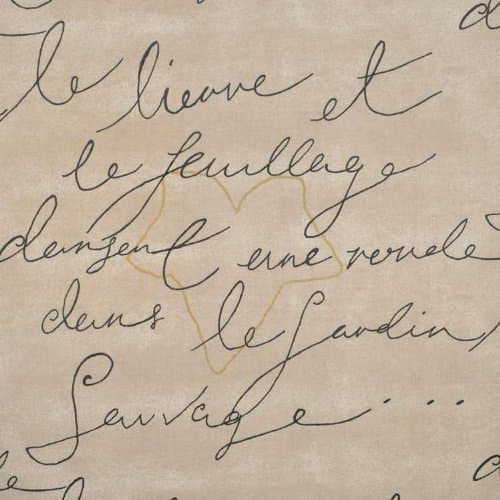 Le lierre et
le feuillage
dansent une ronde
dans le jardin
Sauvage...